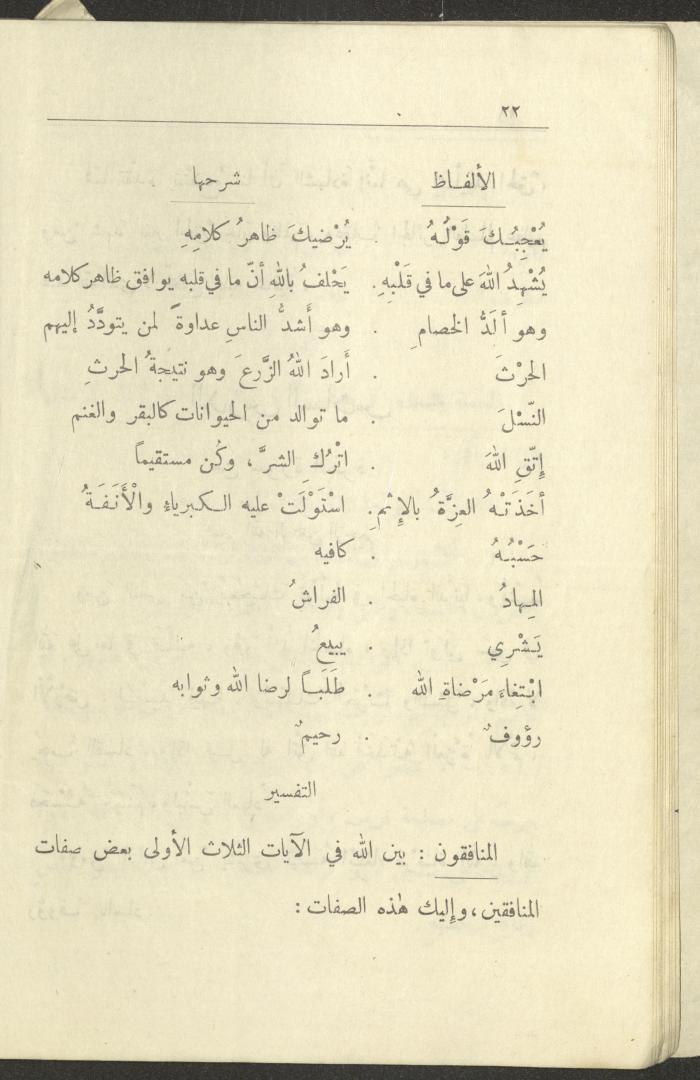 ٢٢
الألفـاظ شرحها
يُعْجِبُـكَ قَوْلُـهُ . يُرْضيكَ ظاهرُ كلامِهِ
يُشْهِدُ اللهَ على ما في قَلْبِهِ . يَحْلفُ باللهِ أنّ ما في قلبه يوافق ظاهر كلامه
وهو ألَدُّ الخصامِ . وهو أَشدُّ الناسِ عداوةً لمن يتودَّدُ إليهم
الحرْثَ . أَرادَ اللهُ الزَّرعَ وهو نتيجةُ الحرثِ
النّسْلَ . ما توالد من الحيوانات كالبقر والغنم
إتّقِ اللهَ . اتْرُكِ الشرَّ ، وكُن مستقيماً
أخَذَتْـهُ العِزَّةُ بالإِثمِ . اسْتَوْلَتْ عليه الـكبرياءِ والْأَنَـفَـةُ
حَسْبُـهُ . كافيه
المِـهادُ . الفراشُ
يَـشْرِي . يبيعُ
ابْـتِغاءَ مَرْضاةِ الله . طَلَبـاً لرضا الله وثوابه
رؤوفٌ . رحيمٌ
التفسير
المنافقون : بين الله في الآيات الثلاث الأولى بعض صفات
المنافقين ، وإليك هٰذه الصفات :